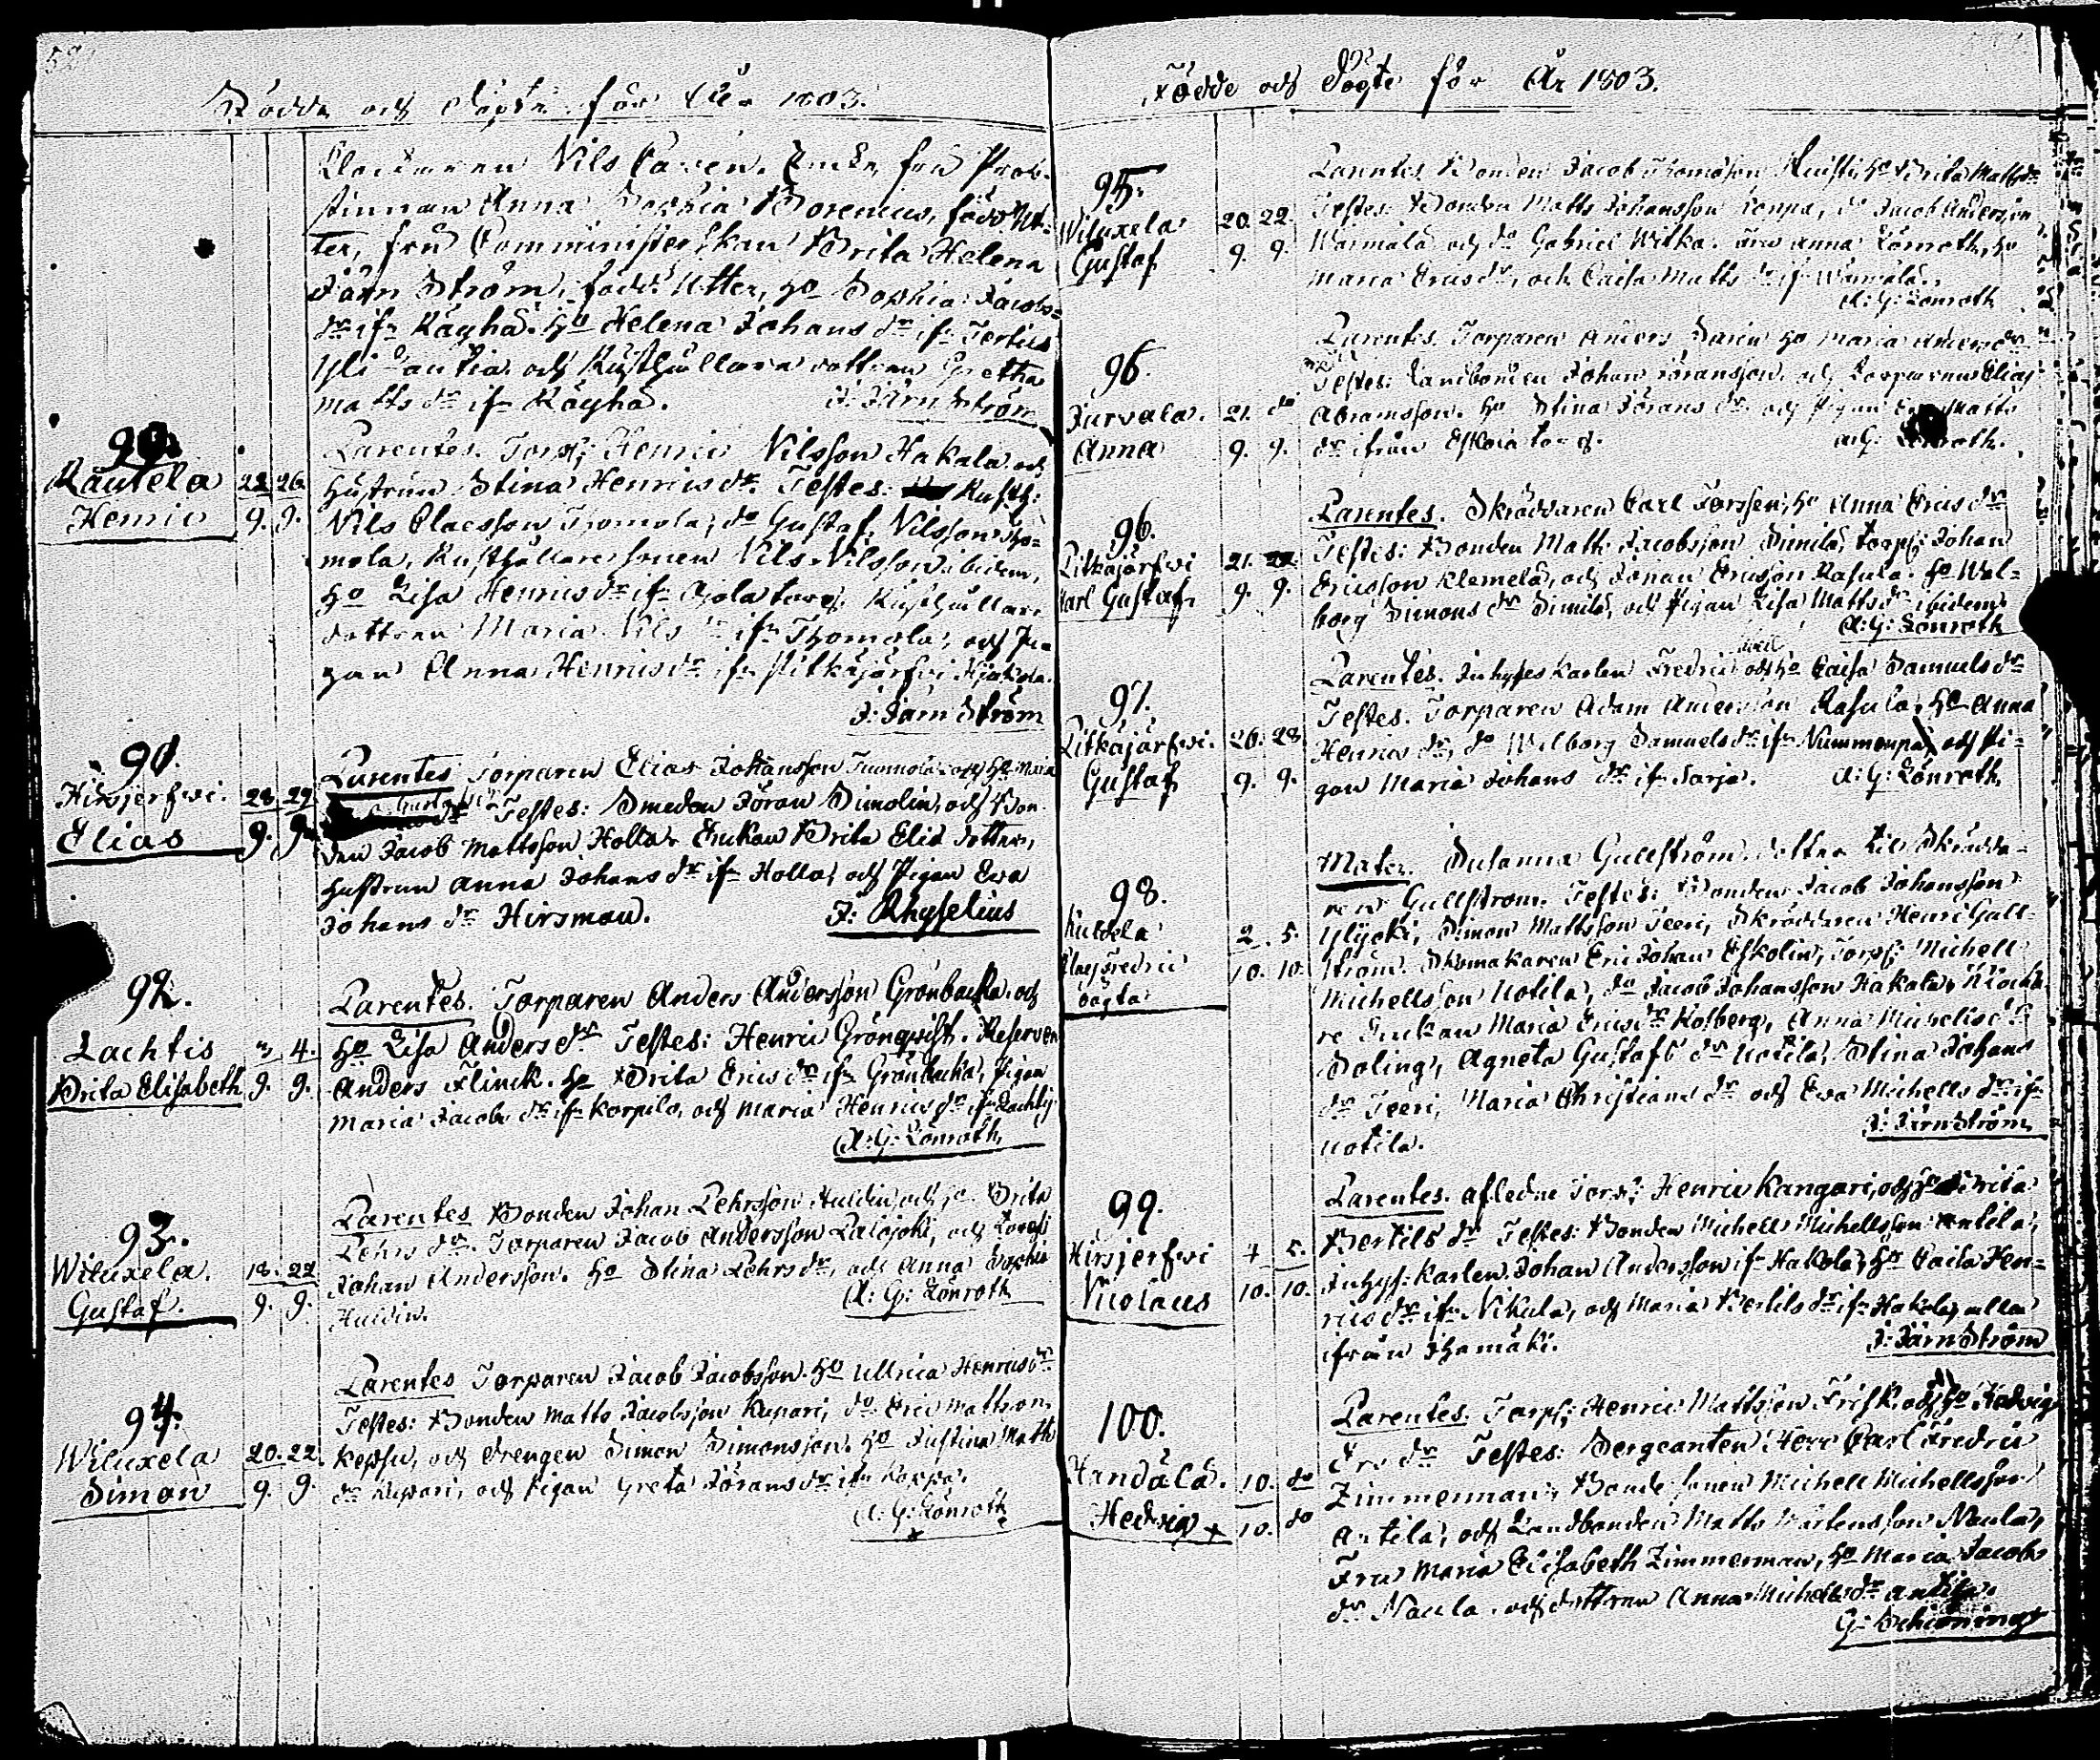 52
Födde och Döpte för År 1803.
Klockaren Nils Caren. Enke fru Prob-
stinnan Anna Sophia Borenius, född Ut-
ter, fru Comministerskan Brita Helena
Järn Ström, född Utter, ho Sophia Jacobs
dr ifn Räyhä. ho Helena Johans dr ifn Tertilä
och Rusthållare dottren Gretha
Matts dr ifn Räyhä. J: JärnStröm
90.
Rautela 22 26
Henric 9. 9.
Parentes. Torp: Henric Nilsson Hakala och
hustrun Stina Henrics dr. Testes: Rusth:
Nils Claesson Thomola, do Gustaf Nilsson Tho-
mola, Rusthållare sonen Nils Nilsson ibidem,
ho Lisa Henrics dr ifn Ojola torp. Rusthållare
dottren Maria Nils dr ifn Thomola, och Pi-
gan Anna Henrics dr ifn Pitkäjärfwi
J: JärnStröm
91.
Hirsjerfwi. 28. 29
Elias 9. 9.
Parentes Torparen Elias Johansson Tuomola och ho Maria
Gustafs
dr Testes: Smeden Jöran Simolin, och Bon-
den Jacob Mattsson Holla. Enkan Brita Elis dotter,
hustrun Anna Johans dr ifn Holla, och Pigan Ewa
Johans dr Hirsmau. J: Rhyselius
92.
Lachtis 3 4.
Brita Elisabeth 9. 9.
Parentes. Torparen Anders Andersson Grönbacka och
ho Lisa Anders dr Testes: Henric Grönqvist. Reserven
Anders Flinck. ho Brita Erics dr ifn Grönbacka, Pigan
Maria Jacobs dr ifn Korpilo, och Maria Henrics dr ifn Lachtis
A: G: Lönroth
93.
Wiluxela. 18. 22
Gustaf. 9. 9.
Parentes Bonden Johan Pehrsson Huldin och ho Brita
Pehrs dr. Torparen Jacob Andersson Palojoki, och
Johan Andersson. ho Stina Pehrs dr, och Anna Sophia
Huldin. A: G: Lönroth
94.
Wiluxela 20. 22.
Simon 9. 9.
Parentes Torparen Jacob Jacobsson. ho Ullrica Henrics dr
Testes: Bonden Matts Jacobsson Kupari, do Eric Mattsson
Keppu, och drengen Simon Simonsson. ho Justina Matts
dr Kupari, och Pigan Greta Jörans dr ifn
A: G: Lönroth
Födde och Döpte för År 1803.
95.
Wiluxela 20. 22.
Gustaf 9. 9.
Parentes. Bonden Jacob Thomasson ho Brita Matts dr
Testes: Bonden Matts Johansson do Jacob Andersson
Warmala och do Gabriel Wilka. Fru Anna Lönroth, ho
Maria Erics dr, och Caisa Matts dr ifn Warmala.
A: G: Lönroth
96.
Jurvala. 21. do
Anna 9. 9.
Parentes. Torparen Anders ho Maria Anders dr
Testes: Landbonden Johan Göransson, och Torparen Elias
Abramsson. ho Stina Jörans dr och Pigan Matts
dr ifrån torp. A: G: Lönroth.
96.
Pitkäjärfwi 21. 22
Karl Gustaf 9. 9.
Parentes. Skräddaren Carl Forssen, ho Anna Erics dr
Testes: Bonden Matts Jacobsson Simila, torp: Johan
Ericsson Klemelä, och Johan Ericsson Rasula. ho Wal-
borg Simons dr Similä, och Pigan Lisa Matts dr ibidem
A: G: Lönroth
97.
Pitkäjärfwi. 26. 28
Gustaf 9. 9.
Parentes. Inhyses Karlen Fredric och ho Caisa Samuels dr
Testes. Torparen Adam Andersson Rasula, ho Anna
Henrics dr, do Walborg Samuels dr ifn Nummenpä, och Pi-
gan Maria Johans dr ifn Sarja. A: G: Lönroth
98.
Kuldela 2. 5.
Claes Fredric 10. 10.
oägta
Mater. Susanna Gullström. dotter til Skrädda-
ren Gullström. Testes: Bonden Jacob Johansson
Ylijoki, Simon Mattsson Teeri, Skräddaren Henric Gull-
ström. Skomakaren Eric Johan Eskolin, Torp: Michell
Michellsson Uotila, do Jacob Johansson Hakala, Klocka-
re Enckan Maria Erics dr Kolberg, Anna Michels dr
Soling, Agneta Gustafs dr Uotila, Stina Johans
dr Teeri, Maria Christians dr och Ewa Michells dr ifn
Uotila. J: JärnStröm
99.
Hirsjerfwi 4 5.
Nicolaus 10. 10.
Parentes. afledne Torp: Henric Kangari, och ho Brita
Bertils dr Testes: Bonden Michell Michellsson Antila,
Inhys: Karlen Johan Andersson ifn Hakola, ho Caisa Hen-
rics dr ifn Nikula, och Maria Bertils dr ifn Hakola, alla
ifrån Ihamäki. J: JärnStröm
100.
Handälä. 10. do
Hedwig + 10. do
Parentes. Torp: Henric Mattsson Frisk och ho Hedwig
dr Testes: Sergeanten Herr Carl Fredric
Zimmerman, Bonde sonen Michell Michellsson
Antila, och Landbonden Matts Mårtensson Naula,
Fru Maria Elisabeth Zimmerman, ho Maria Jacobs
dr Naula. och dottren Anna Michells dr Antila.
G: Schöning